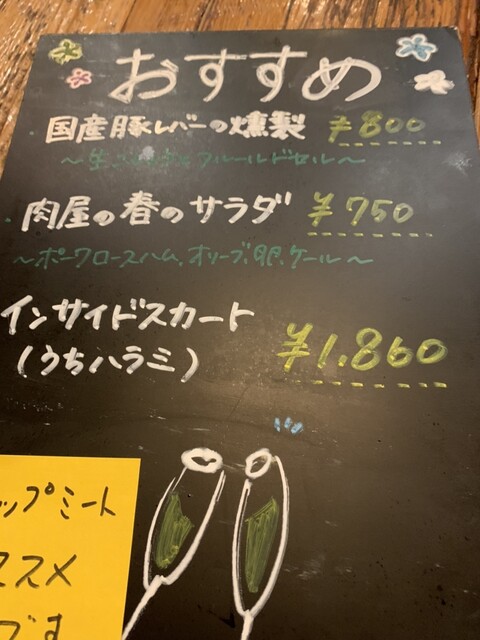 おすすめ
国産豚レバーの燻製 ¥800
フルールドセル～
肉屋の春のサラダ ¥750
～ポークロースハム、オリーブ、卵、ケール～
インサイドスカート
(うちハラミ) ¥1.860
ップミート
ススメ
です